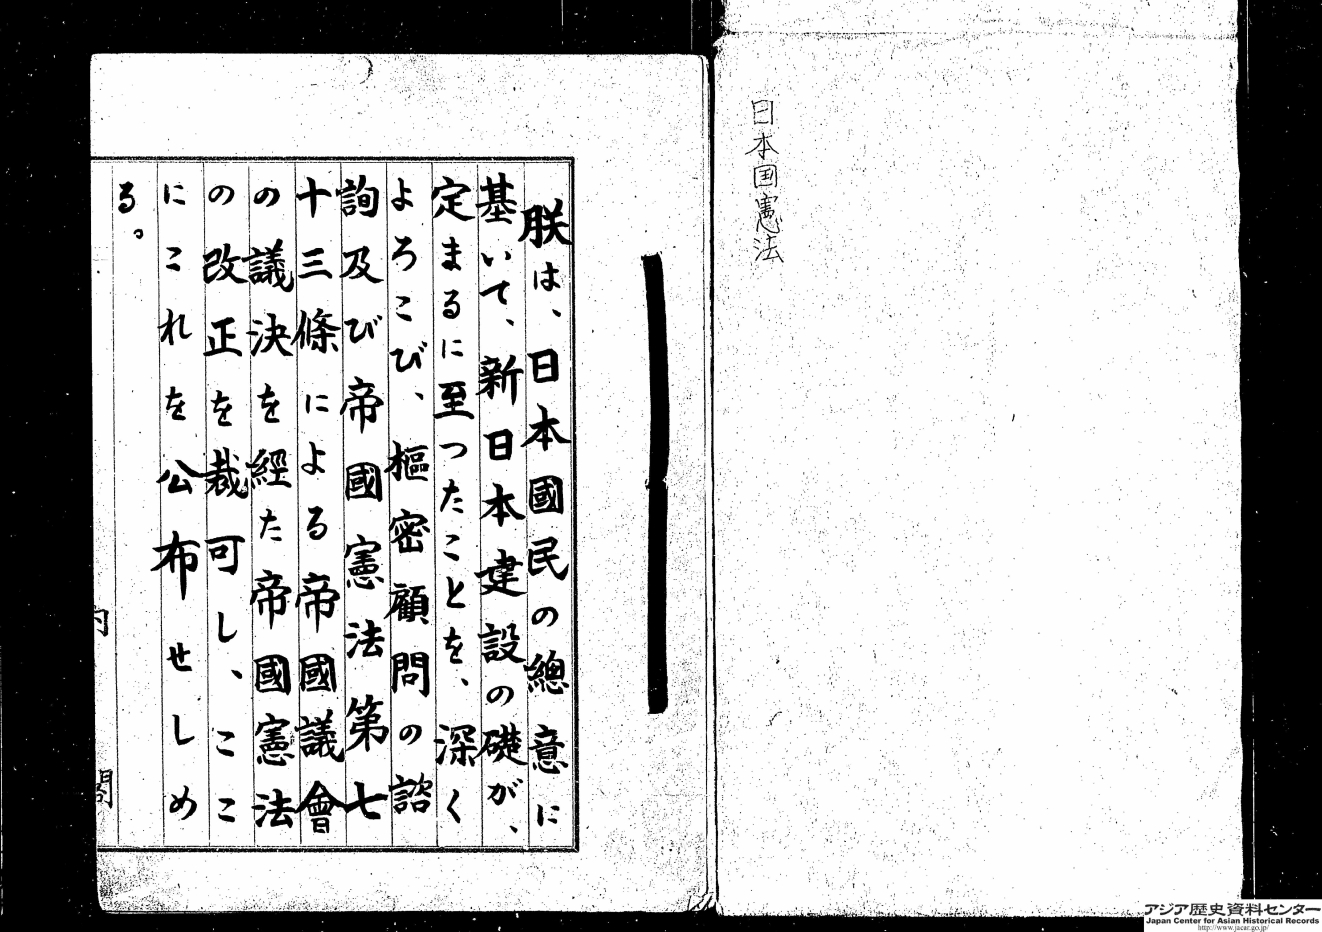 日本国憲法
朕は、日本國民の總意に
基いて、新日本建設の礎が、
定まるに至つたことを、深く
よろこび、樞密顧問の諮
詢及び帝國憲法第七
十三條による帝國議會
の議決を経た帝國憲法
の改正を裁可し、ここ
にこれを公布せしめ
る。
内閣
アジア歴史資料センター
Japan Center for Asian Historical Records
http://www.jacar.go.jp/